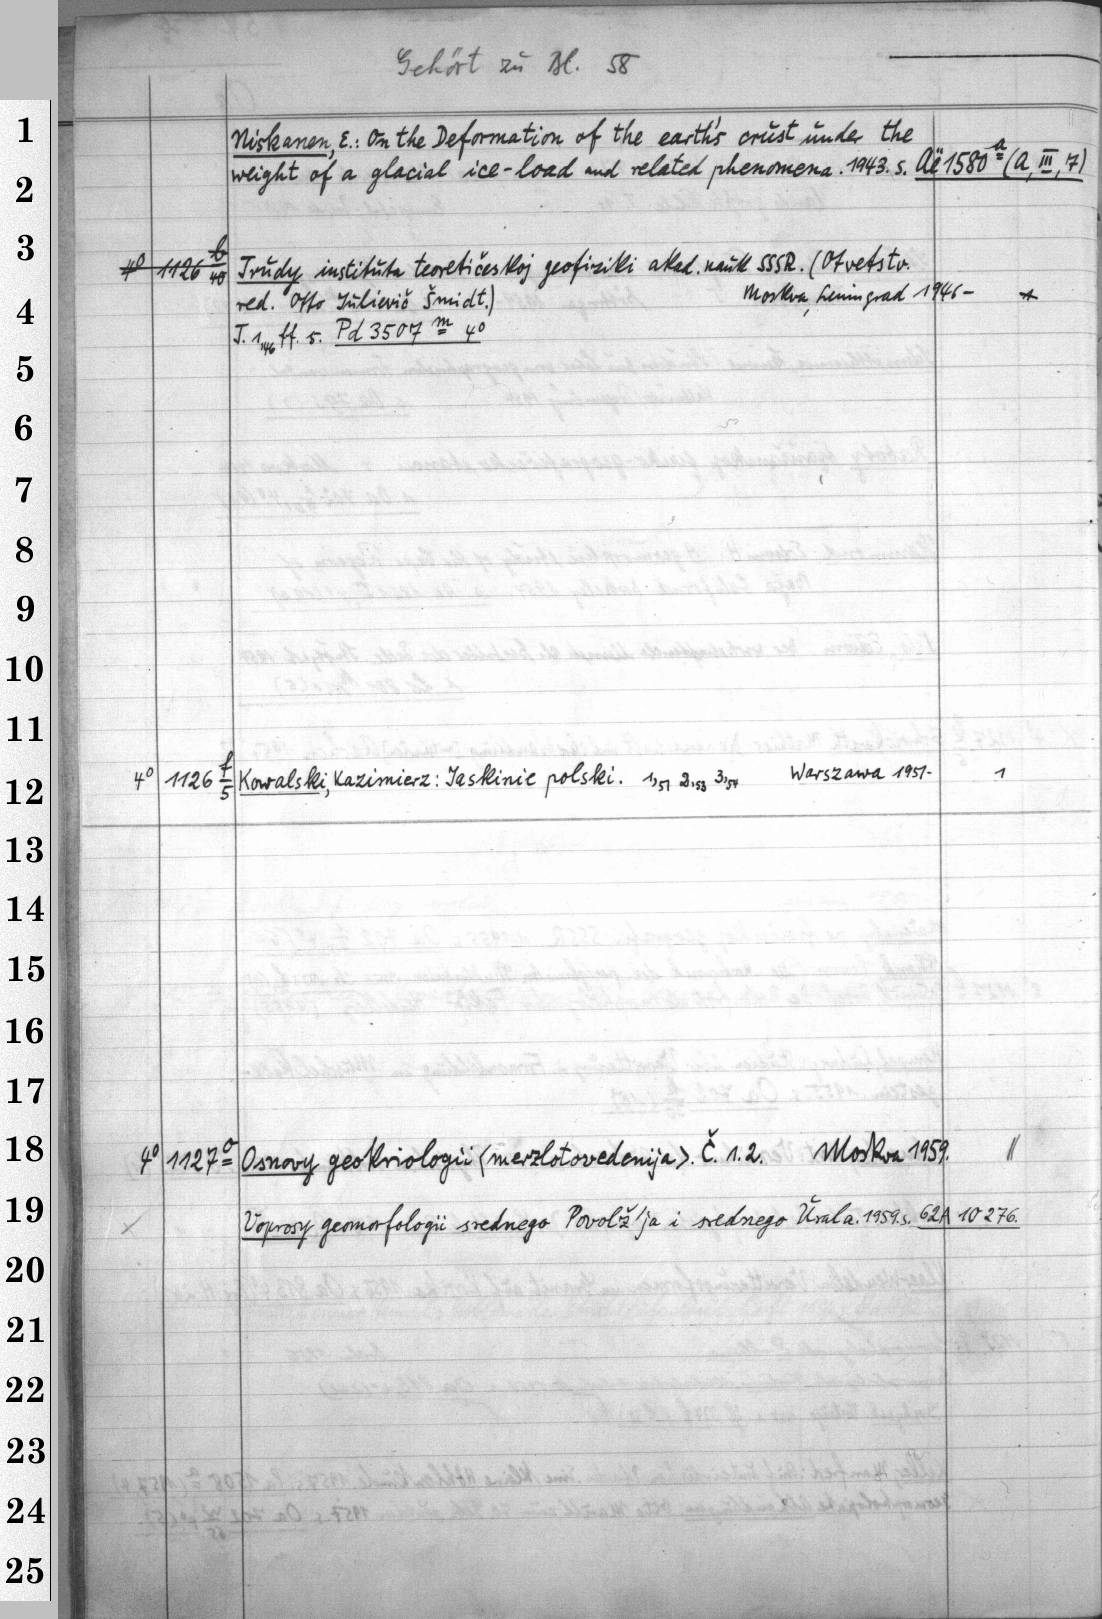 Gehört zu Bl. 58
1 Niskanen, E.: On the Deformation of the earth's crust under the
2 weight of a glacial ice-load and related phenomena. 1943. s. Aë 1580 a (A, III, 7)
3 4° 1126 b/40 Trudy instituta teoretičeskoj geofiziki akad. nauk SSSR. (Otvetstv.
4 red. Otto Julievič Šmidt.) Moskva, Leningrad 1946-
T. 1,46 ff. s. Pd 3507 m 4°
5
6
7
8
9
10
11
12 4° 1126 f/5 Kowalski, Kazimierz: Jaskinie polski. 1,51 2,53 3,54 Warszawa 1951- 1
13
14
15
16
17
18 4° 1127 a Osnovy geokriologii (merzlotovedenija). Č. 1. 2. Moskva 1959. ||
19 Voprosy geomorfologii srednego Povolž'ja i srednego Urala. 1959. s. 62A 10 276.
20
21
22
23
24
25